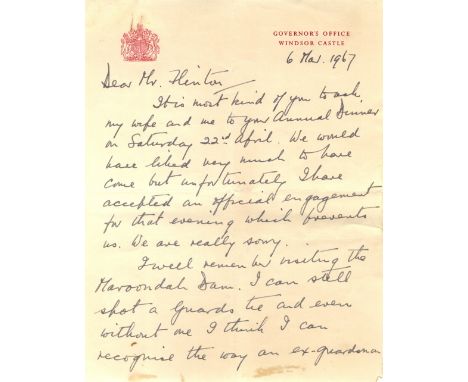 GOVERNOR'S OFFICE
WINDSOR CASTLE
6 Mar. 1967
Dear Mr. Hinton
It is most kind of you to ask
my wife and me to your Annual Dinner
on Saturday 22nd April. We would
have liked very much to have
come but unfortunately I have
accepted an official engagement
for that evening which prevents
us. We are really sorry.
I well remember visiting the
Maroondah Dam. I can still
spot a Guards tie and even
without one I think I can
recognise the way an ex-guardsman